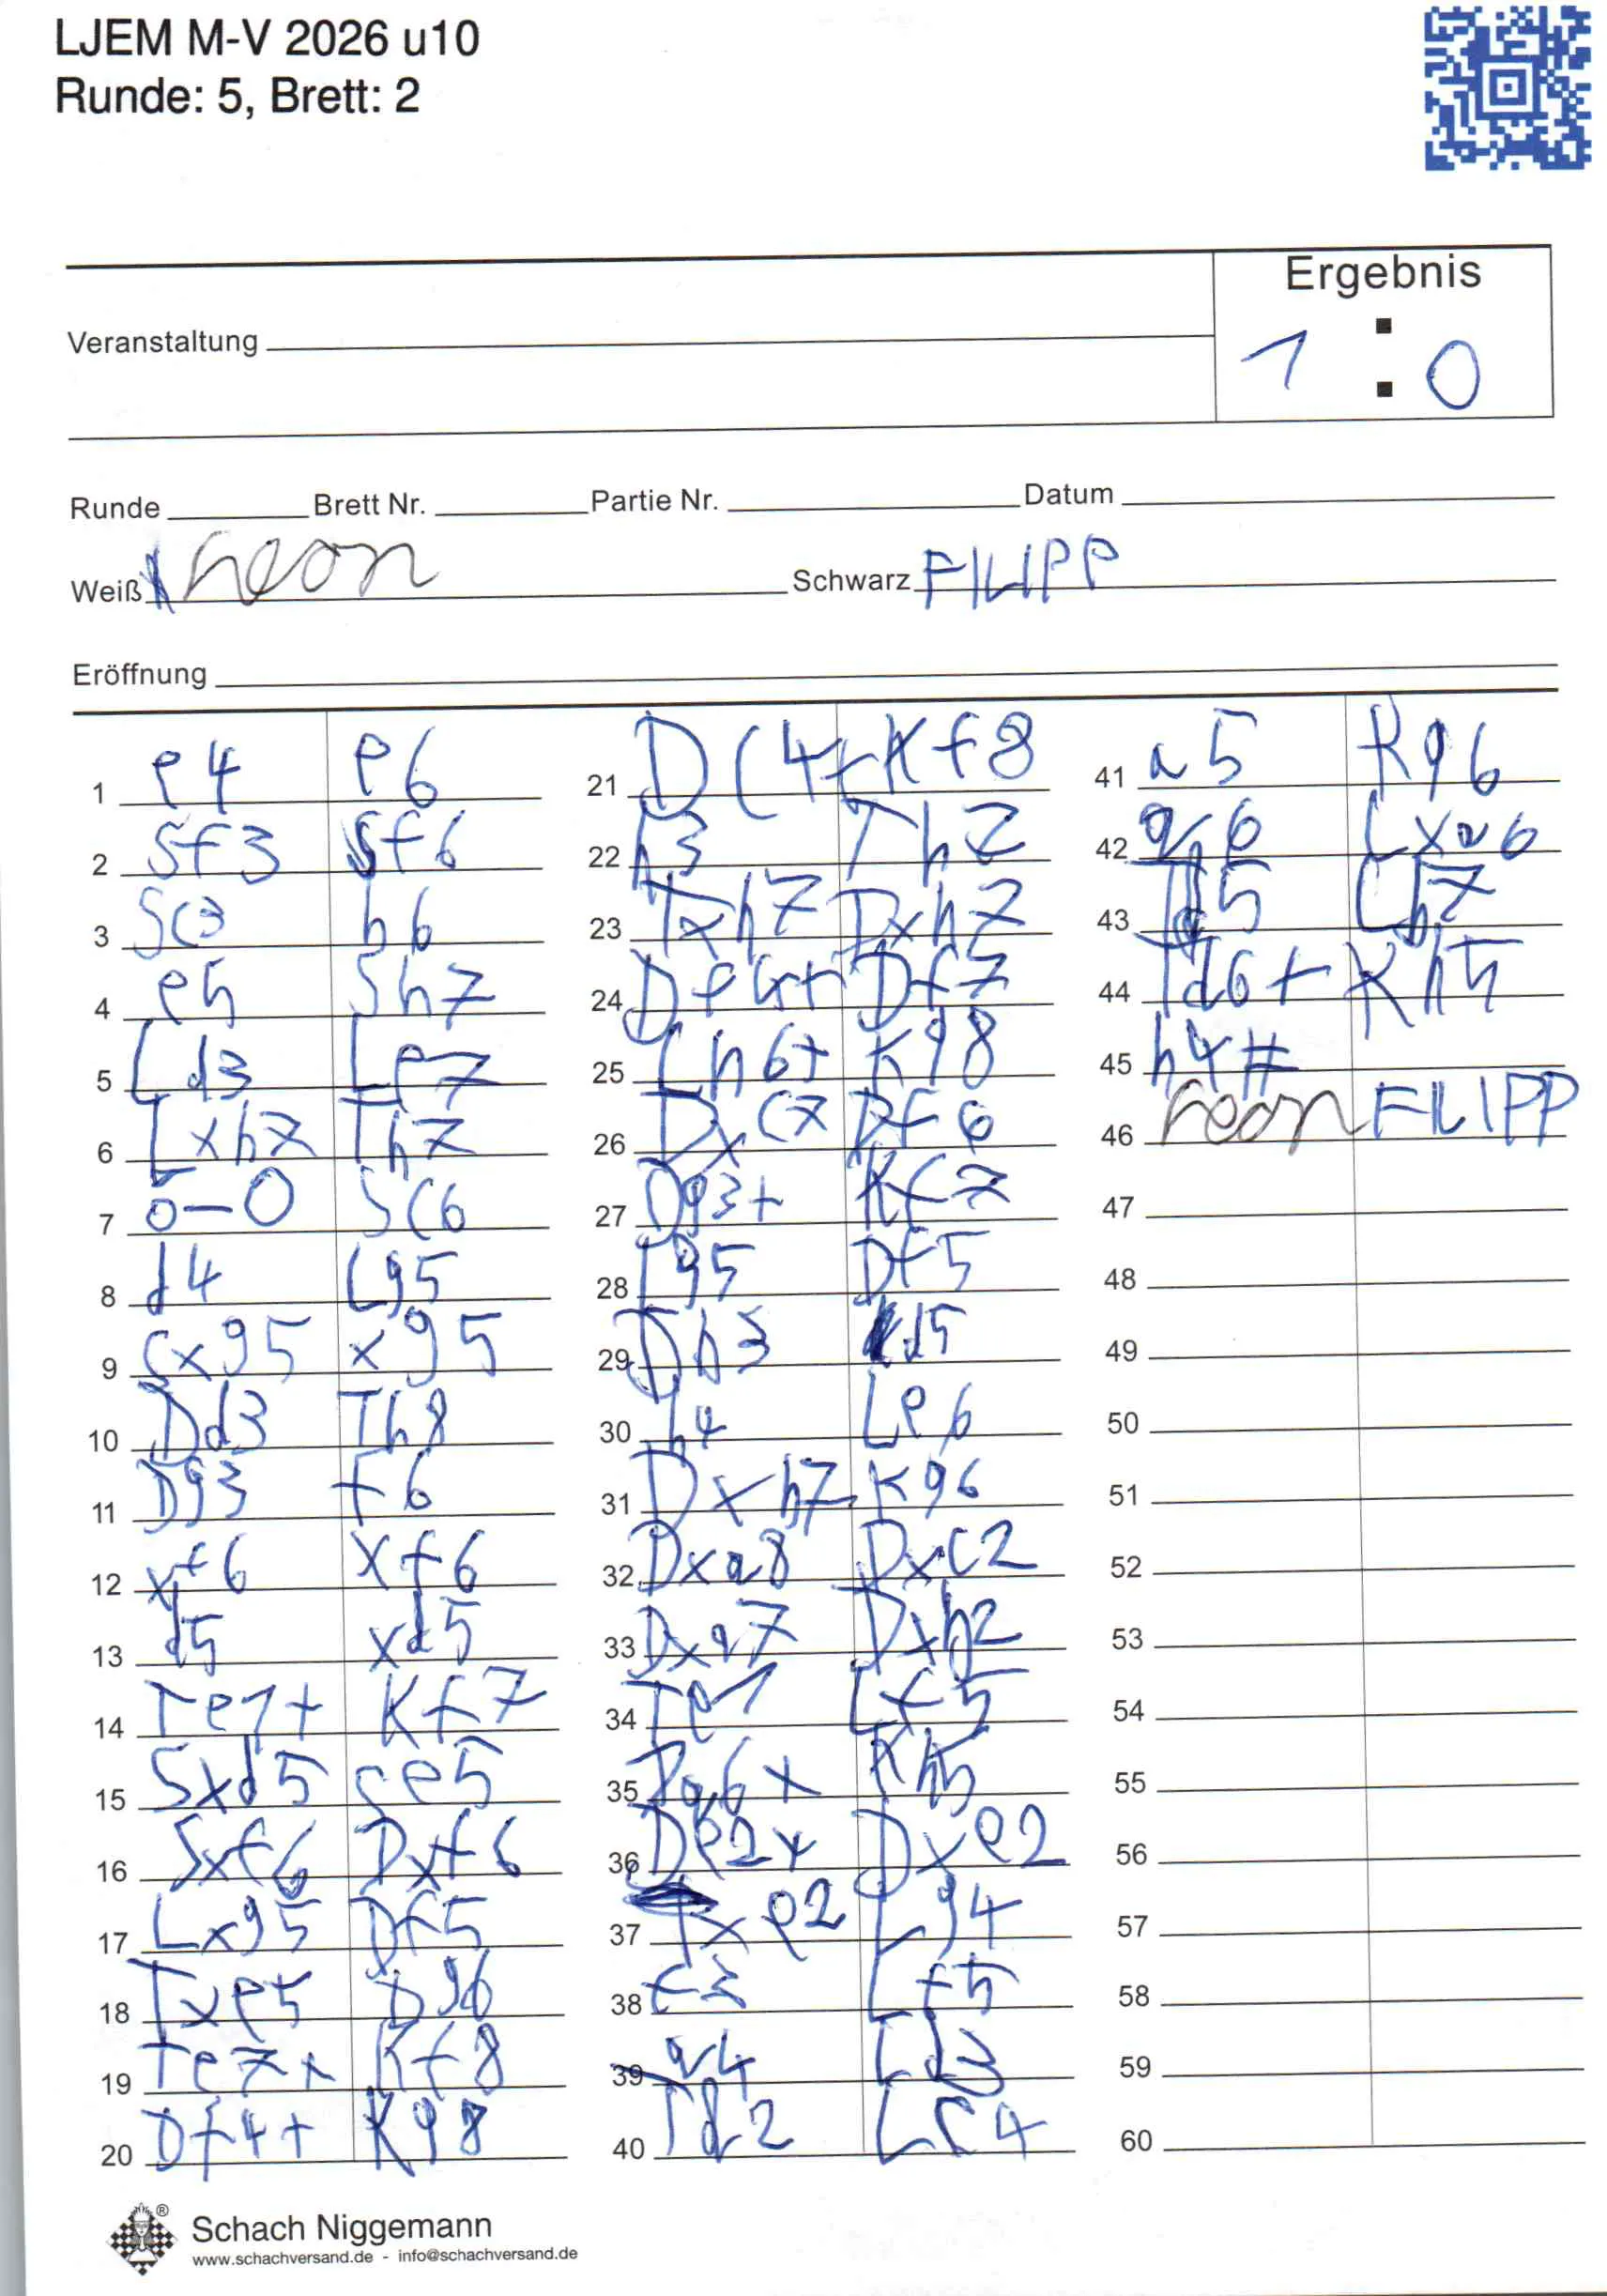 LJEM M-V 2026 u10
Runde: 5, Brett: 2
Ergebnis
1 : 0
Veranstaltung
Runde Brett Nr. Partie Nr. Datum
Weiß Schwarz FILIPP
Eröffnung
1 e4 e6
2 Sf3 Sf6
3 Sc3 h6
4 e5 Sh7
5 Ld3 Le7
6 Lxh7 Th7
7 0-0 Sc6
8 d4 Lg5
9 Sxg5 xg5
10 Dd3 Th8
11 Dg3 f6
12 xf6 xf6
13 d5 xd5
14 Te1+ Kf7
15 Sxd5 Se5
16 Sxf6 Dxf6
17 Lxg5 Df5
18 Txe5 Dg6
19 Te7+ Kf8
20 Df4+ Kg8
21 Dc4+ Kf8
22 h3 Th7
23 Txh7 Dxh7
24 Df4+ Df7
25 Lh6+ Kg8
26 Dxc7 Df6
27 Dg3+ Kf7
28 Lg5 Df5
29 Db3 d5
30 h4 Le6
31 Dxb7 Kg6
32 Dxa8 Dxc2
33 Dxa7 Dxb2
34 Te1 Lf5
35 Kh5
36 De2+ Dxe2
37 Txe2 Lg4
38 f3 Lf5
39 a4 Ld3
40 Td2 Lc4
41 a5 Kg6
42 a6 Lxa6
43 Lb7
44 Td6+ Kh5
45 h4#
46 FILIPP
47
48
49
50
51
52
53
54
55
56
57
58
59
60
®
Schach Niggemann
www.schachversand.de - info@schachversand.de